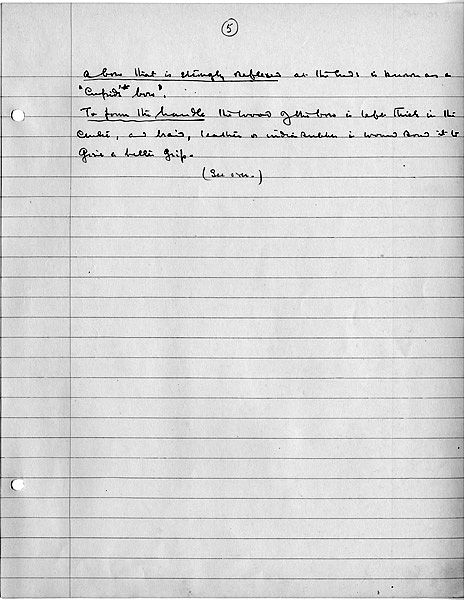 5
A bow that is strongly reflexed at the ends is known as a
"Cupid's bow".
To form the handle the wood of the bow is left thick in the
centre, and braid, leather or indiarubber is wound round it to
give a better grip.
(See over.)